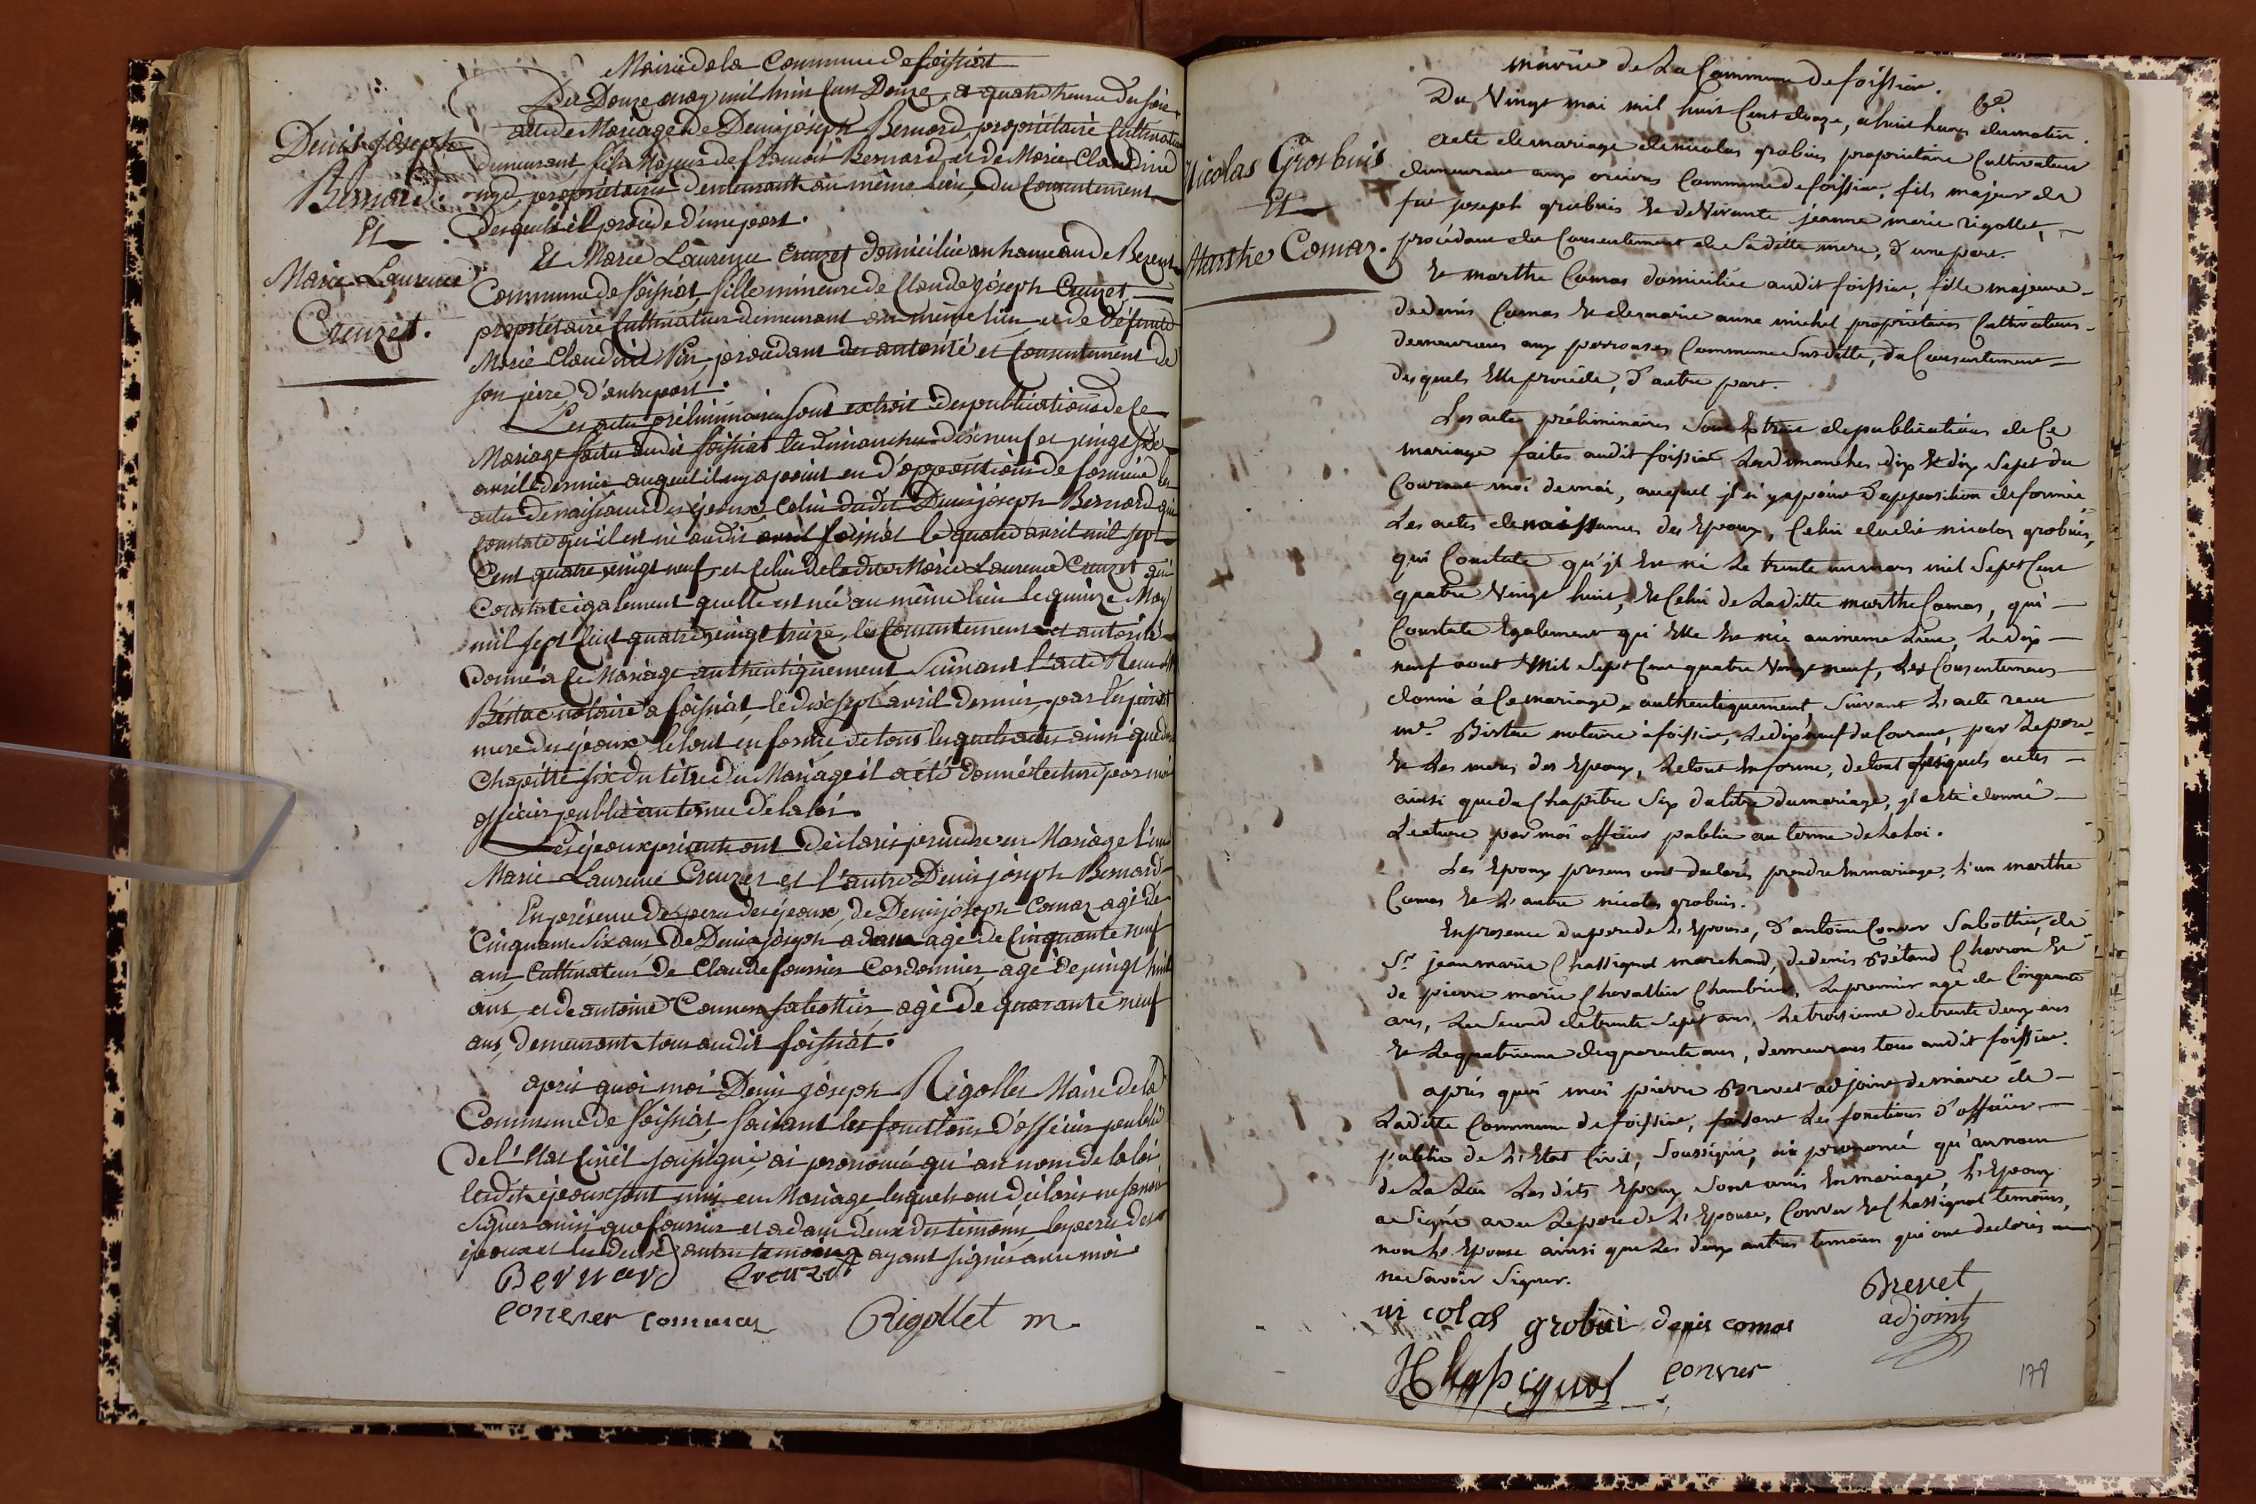 Mairie de la Commune de foissiat
Du Douze may mil huit Cent Douze, a quatre heure du soir
acte de Mariage de Denis joseph Bernard propriétaire Cultivateur
Denis joseph
Bernard.
Et
Marie Laurence
Creuzet.
demeurant, fils Majeur de françois Bernard et de Marie Claudine
propriétaires demeurant au même lieu, du Consentement
Desquels il procède d'une part.
Et Marie Laurence Creuzet domiciliée au hameau de Bezent
Commune de foissiat, fille mineure de Claude joseph Creuzet,
propriétaire Cultivateur demeurant au même lieu et de Défunte
Marie Claudine Pin, procédant de autorité et Consentement de
son père d'autre part.
Les actes préliminaires sont extrait des publications de Ce
Mariage faites audit foissiat les dimanches dix neuf et vingt six
avril dernier auquel il ny a point eu d'opposition de formée les
actes de naissance des époux, Celui dudit Denis joseph Bernard qui
Constate qu'il est né audit avril foissiat le quatre avril mil sept
Cent quatre vingt neuf, et Celui de ladite Marie Laurence Creuzet qui
Constate également quelle est née au même lieu le quinze May
mil sept Cent quatre vingt treize, les Consentement et autorité
donné à Ce Mariage authentiquement suivant l'acte Reçu M
notaire à foissiat, le dix sept avril dernier, par les père et
mere des époux, le tout en forme de tous lesquels actes ainsi que du
Chapitre six du titre du Mariage il a été donné lecture par moi
officier public au terme de la loi.
Les époux présents ont déclaré prendre en Mariage l'un
Marie Laurence Creuzet et l'autre Denis joseph Bernard
En présence des pere des époux, de Denis joseph Comaz agé de
Cinquante Six ans De Denis joseph adam agé de Cinquante neuf
ans Cultivateurs de Claude fournier Cordonnier, agé de vingt huit
ans, et de antoine Conver sabottier agé de quarante neuf
ans, demeurant tous audit foissiat.
après quoi moi Denis joseph Rigollet Maire de la
Commune de foissiat, faisant les fonctions d'officier public
De l'État Civil soussigné, ai prononcé qu'au nom de la loi
lesdits époux sont unis en Mariage, lesquels ont déclaré ne savoir
Signer ainsi que fournier et adam deux des témoins, les peres des
époux et les deux autres temoins ayant signés avec moi
Bernard Creuzet
conver commaz Rigollet m.
mairie de La Commune de foissiat.
Du Vingt mai mil huit Cent douze, a huit heures du matin.
Nicolas Grosbuis
Et
Marthe Comaz.
acte de mariage de nicolas grobuis propriétaire Cultivateur
demeurant aux Commune de foissiat, fils majeur de
feu joseph grobuis Et de Vivante jeanne marie rigollet,
procédant du Consentement de Sa ditte mere, d'une part.
Et marthe Comas domiciliée audit foissiat, fille majeure
de denis Comas Et de marie anne michel propriétaires Cultivateurs
demeurans aux perrouses Commune Susditte, du Consentement
desquels Elle procède, d'autre part.
Les acte préliminaires sont Extrait de publications de Ce
mariage faites audit foissiat Les dimanches dix Et dix Sept du
Courant moi de mai, auquel jl n'y a point d'opposition de formée
Les actes de naissances des Epoux, Celui dudit nicolas grobuis,
qui Constate qu'jl Est né Le trente un mars mil Sept Cent
quatre Vingt huit, Et Celui de Laditte marthe Comas, qui
Constate Egalement qu'Elle Est née au meme Lieu, Le dix
neuf aout Mil Sept Cent quatre Vingt neuf, Les Consentemens
donné à Ce mariage, authentiquement, Suivant L'acte recu
me. notaire à foissiat, Le dix neuf du Courant, par Le pere
Et Les meres des Epoux, Le tout En forme, de tout Lesquels actes
ainsi que du Chapitre Six du titre du mariage, jl a été donné
Lecture par moi officier public au terme de La Loi.
Les Epoux presens ont declarés prendre En mariage, L'un marthe
Comas Et L'autre nicolas grobuis.
En presence du pere de L'Epouse, d'antoine Conver Sabottier, de
Sr. jean marie Chassignol marchand, de denis Bétand Charron Et
de pierre marie Chevallier Chambrier, Le premier agé de Cinquante
ans, Le Second de trente Sept ans, Le troisieme de trente deux ans
Et Le quatrieme de quarente ans, demeurans tous audit foissiat.
après quoi moi pierre Brevet adjoint de maire de
Laditte Commune de foissiat, faisant Les fonctions d'officier
public de L'Etat Civil, Soussigné, ai prononcé qu'au nom
de La Loi Lesdits Epoux Sont unis En mariage, L'Epoux
a Signé avec Le pere de L'Epouse, Conver Et Chassignol temoins,
non L'Epouse ainsi que Les deux autres temoins qui ont declarés
ne Savoir Signer.
Brevet
adjoint
nicolas grobui denis comas
JChassignol conver
178